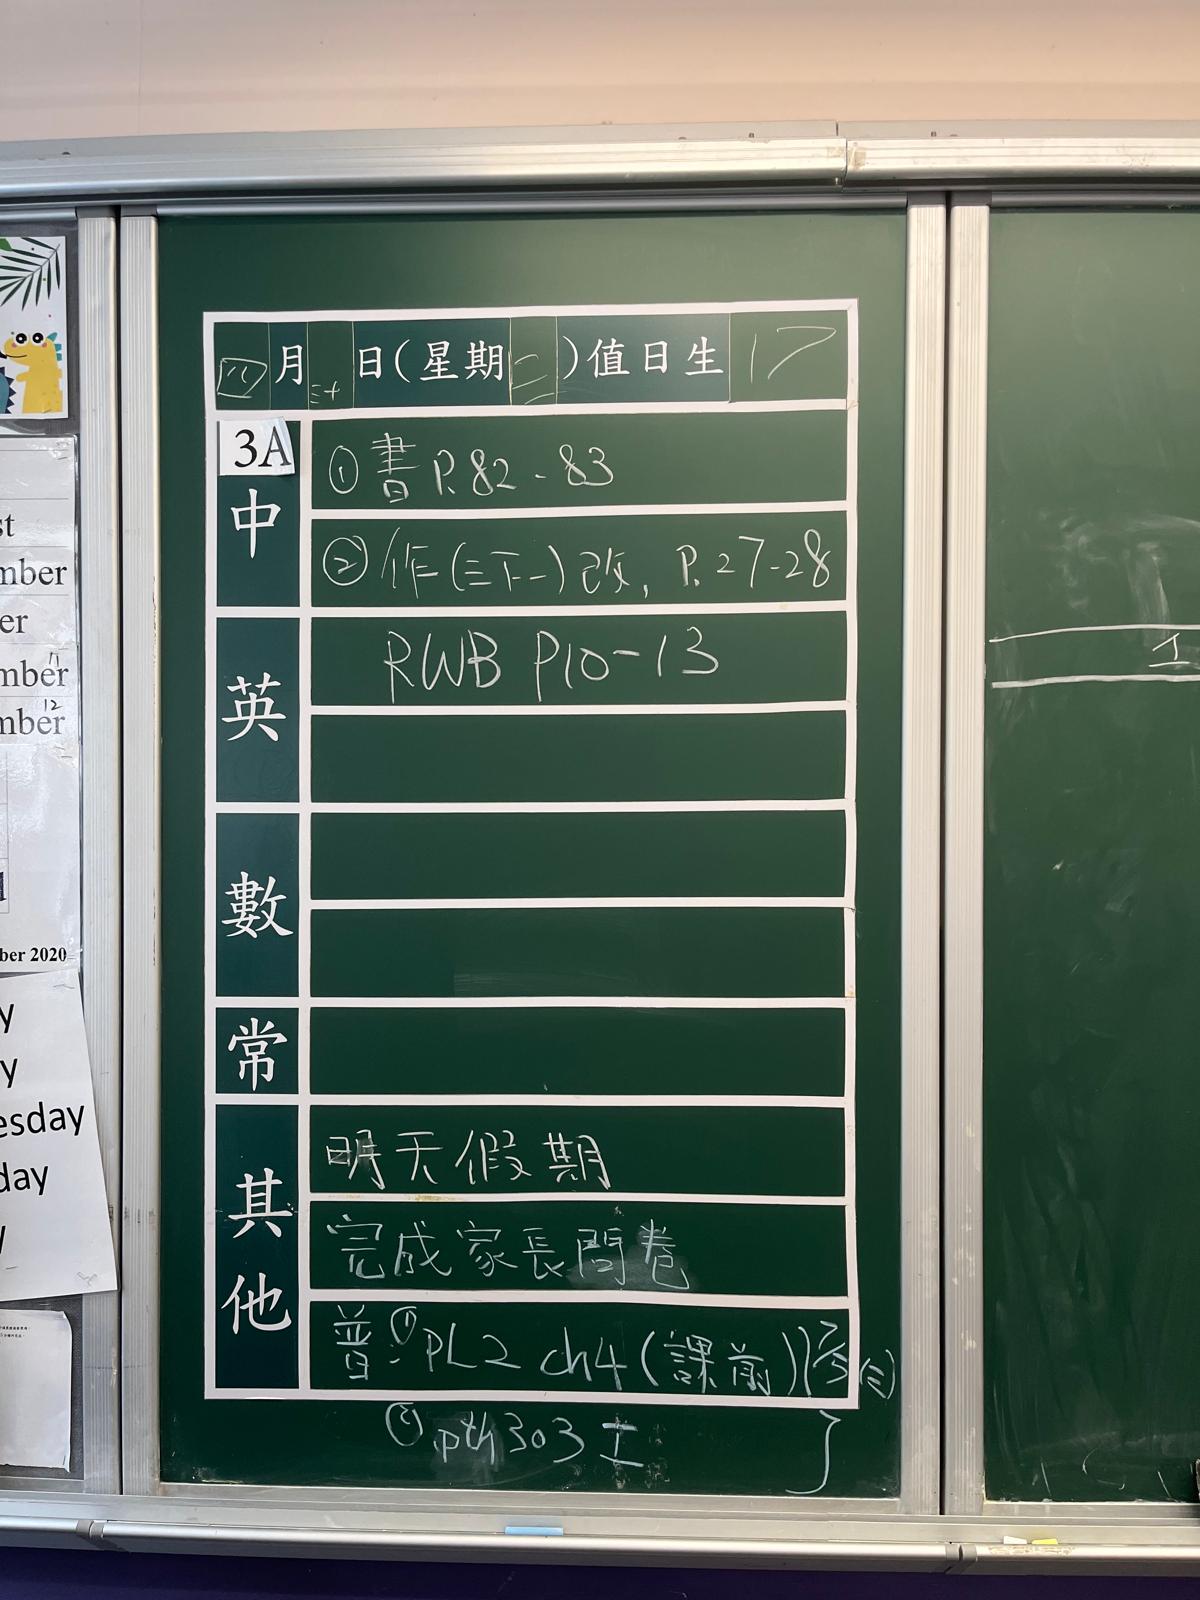 四月三十日(星期二)值日生 17
3A
中
①書 P.82-83
②作(三下一)改, P.27-28
英
RWB P10-13
數
常
其他
明天假期
完成家長問卷
普:①PL2 ch4(課前)
②pth303工
st
mber
er
mber 11
mber 12
ber 2020
y
y
esday
day
y
工